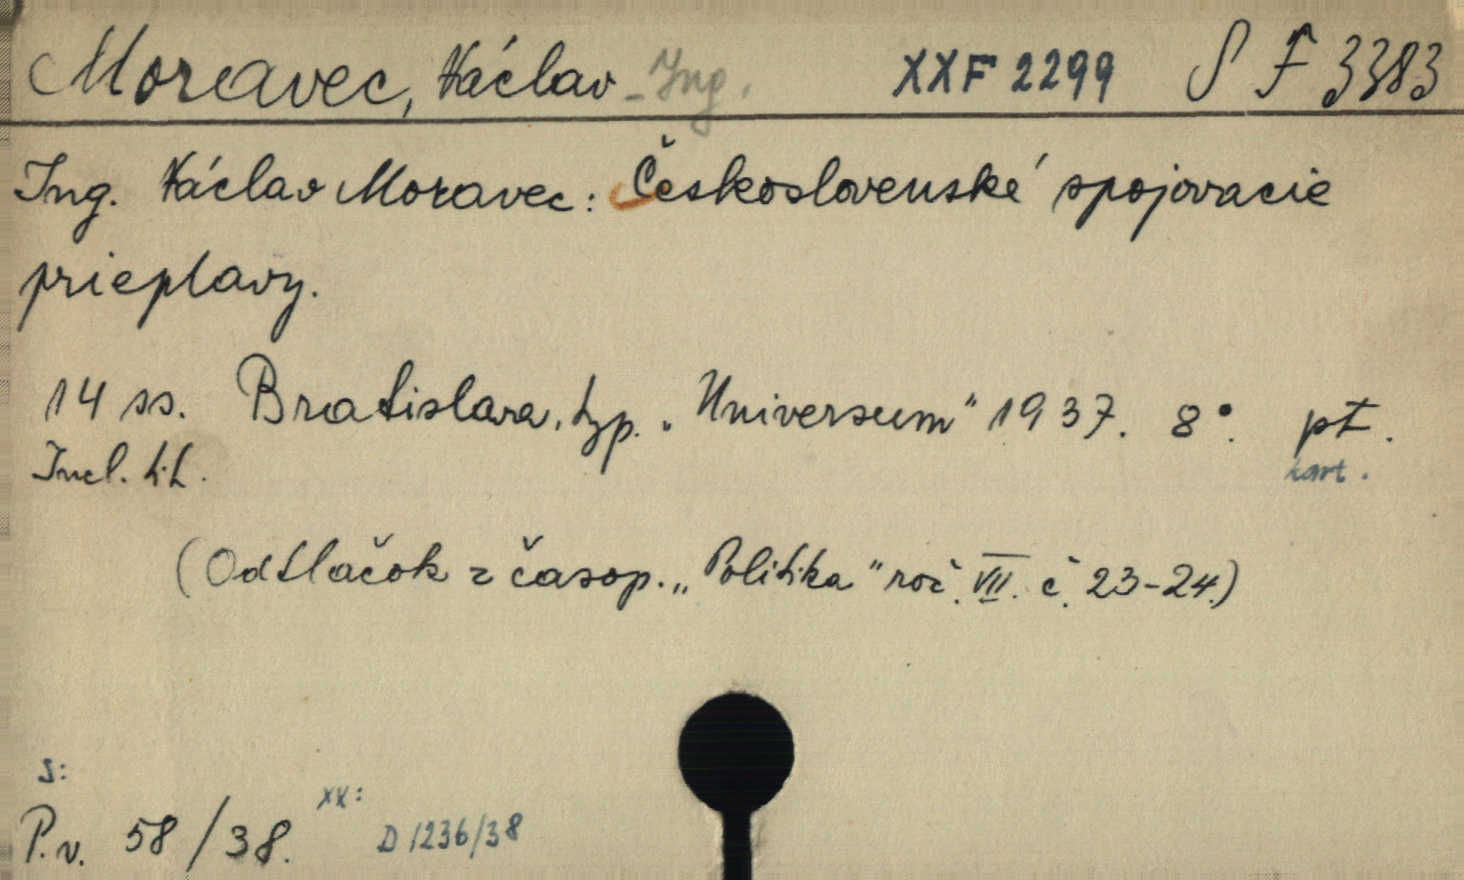 Moravec, Václav - Ing. XXF 2299 S F 3383
Ing. Václav Moravec: Československé spojovacie
prieplavy.
14 ss. Bratislava, typ. „Universum" 1937. 8°. pt.
Incl. tit. kart.
(Odtlačok z časop. „Politika" roč. VII. č. 23-24.)
S:
P.v. 58/38. XX: D 1236/38